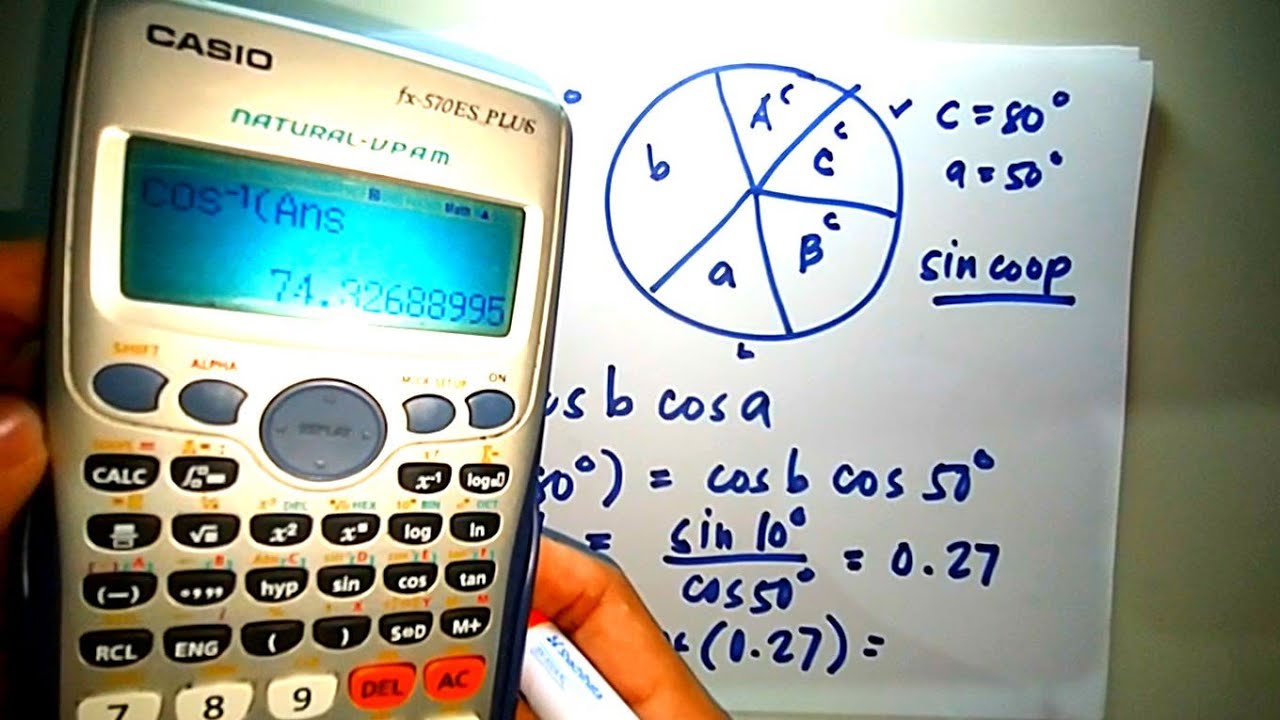 CASIO
fx-570ES PLUS
NATURAL-V.P.A.M.
Math
cos⁻¹(Ans
74.32688995
SHIFT
ALPHA
MODE SETUP
ON
REPLAY
CALC
x⁻¹
log
x²
log
ln
(−)
° ' "
hyp
sin
cos
tan
RCL
ENG
(
)
S⇔D
M+
7
8
9
DEL
AC
°
b
Aᶜ
Cᶜ
a
Bᶜ
b
✓ c = 80°
a = 50°
sin coop
s b cos a
0°) = cos b cos 50°
= sin 10° / cos 50° = 0.27
(0.27) =